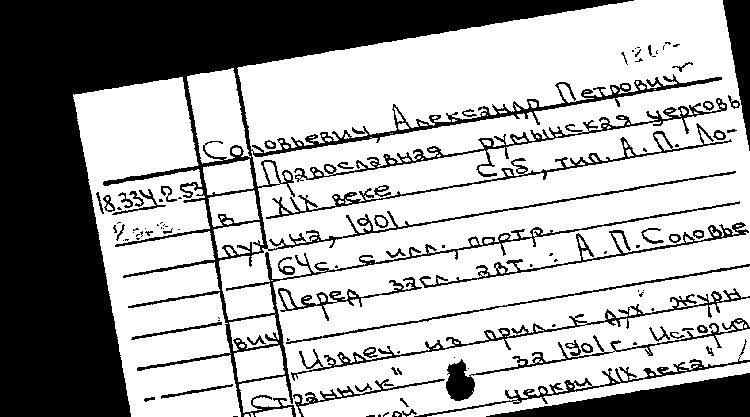 Соловьевич, Александр Петрович
Православная румынская церковь
18.334.2.53.
в XIX веке. Спб., тип. А. П. Ло-
пухина, 1901.
64с. с илл., портр.
Перед загл. авт.: А.П.Соловье
вич.
"Извлеч. из прил. к дух. журн
Странник" за 1901г. "История
церкви XIX века."